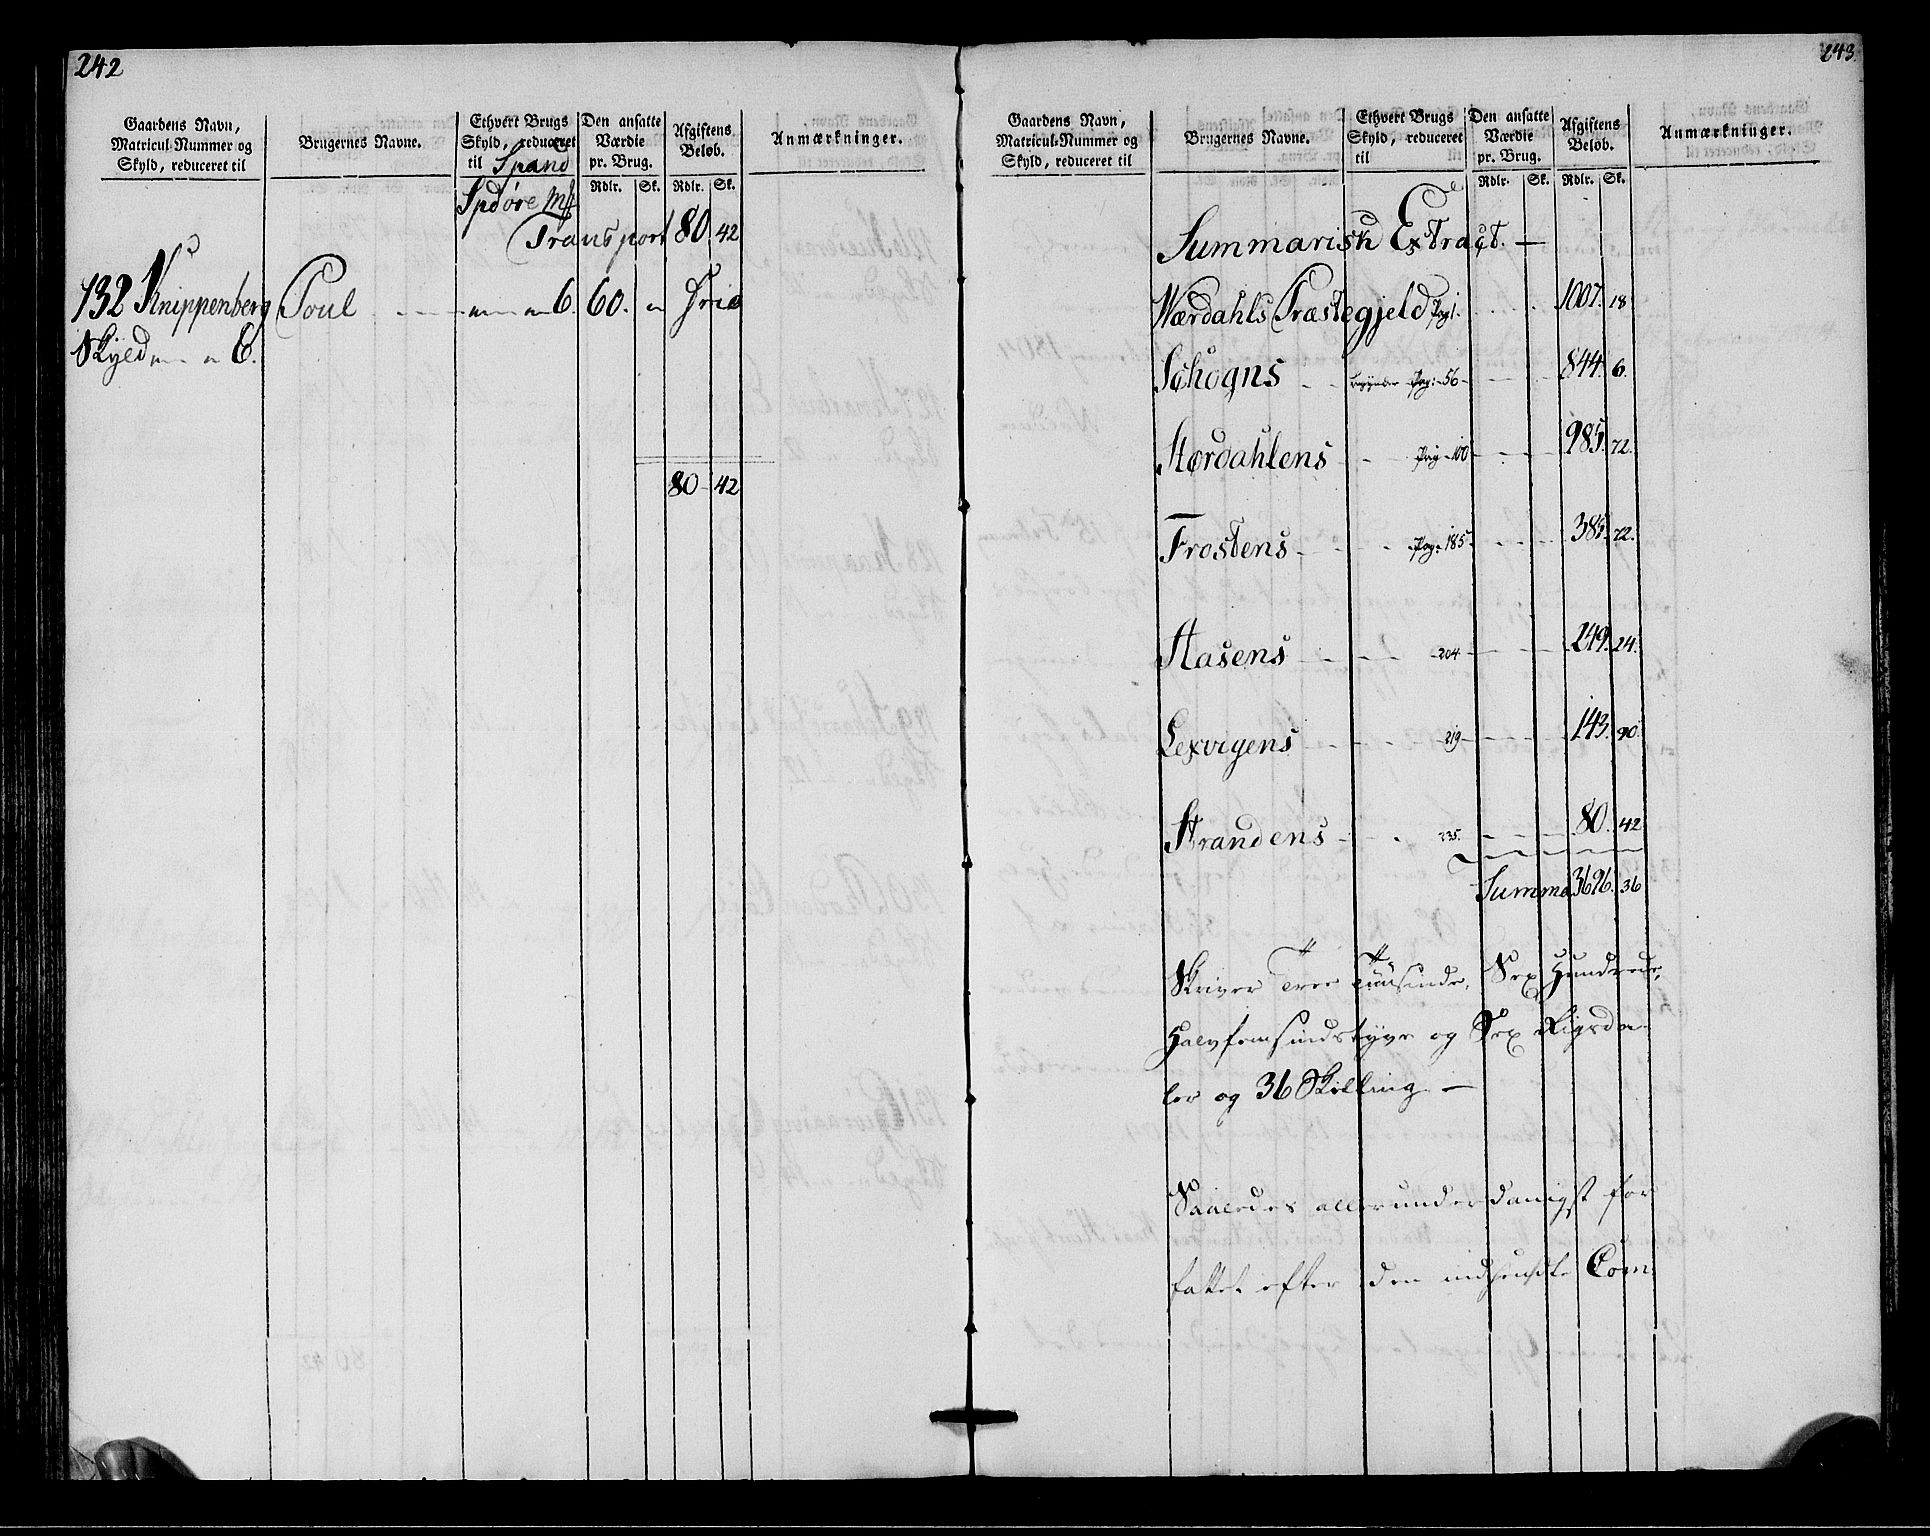 242
Gaardens Navn, Matricul-Nummer og Skyld, reduceret til
Brugernes Navne.
Ethvert Brugs Skyld, reduceret til Spand
Den ansatte Værdie pr. Brug.
Afgiftens Beløb.
Anmærkninger.
Rdlr. Sk. Rdlr. Sk.
Spd øre
Transport 80 42
132 Knippenberg Poul 6. 60. Frie
Skyld 6.
80 42
243.
Gaardens Navn, Matricul-Nummer og Skyld, reduceret til
Brugernes Navne.
Ethvert Brugs Skyld, reduceret til
Den ansatte Værdie pr. Brug.
Afgiftens Beløb.
Anmærkninger.
Rdlr. Sk. Rdlr. Sk.
Summarisk Extract. —
Værdahls Præstegjeld Pag 1. 1007. 18
Schogns begynder Pag: 56 844. 6.
Størdahlens Pag 100 985. 72.
Frostens Pag: 185 385. 72.
Aasens 204 249. 24.
Lexvigens 219 143. 90.
Strandens 235. 80. 42
Summa 3696. 36
Skriver Tree Tüüsinde, Sex Hundrede,
Halvfemsindstyve og Sex Rigsda-
ler og 36 Skilling. —
Saaledes allerunderdanigst for
fattet efter den indsendte Com